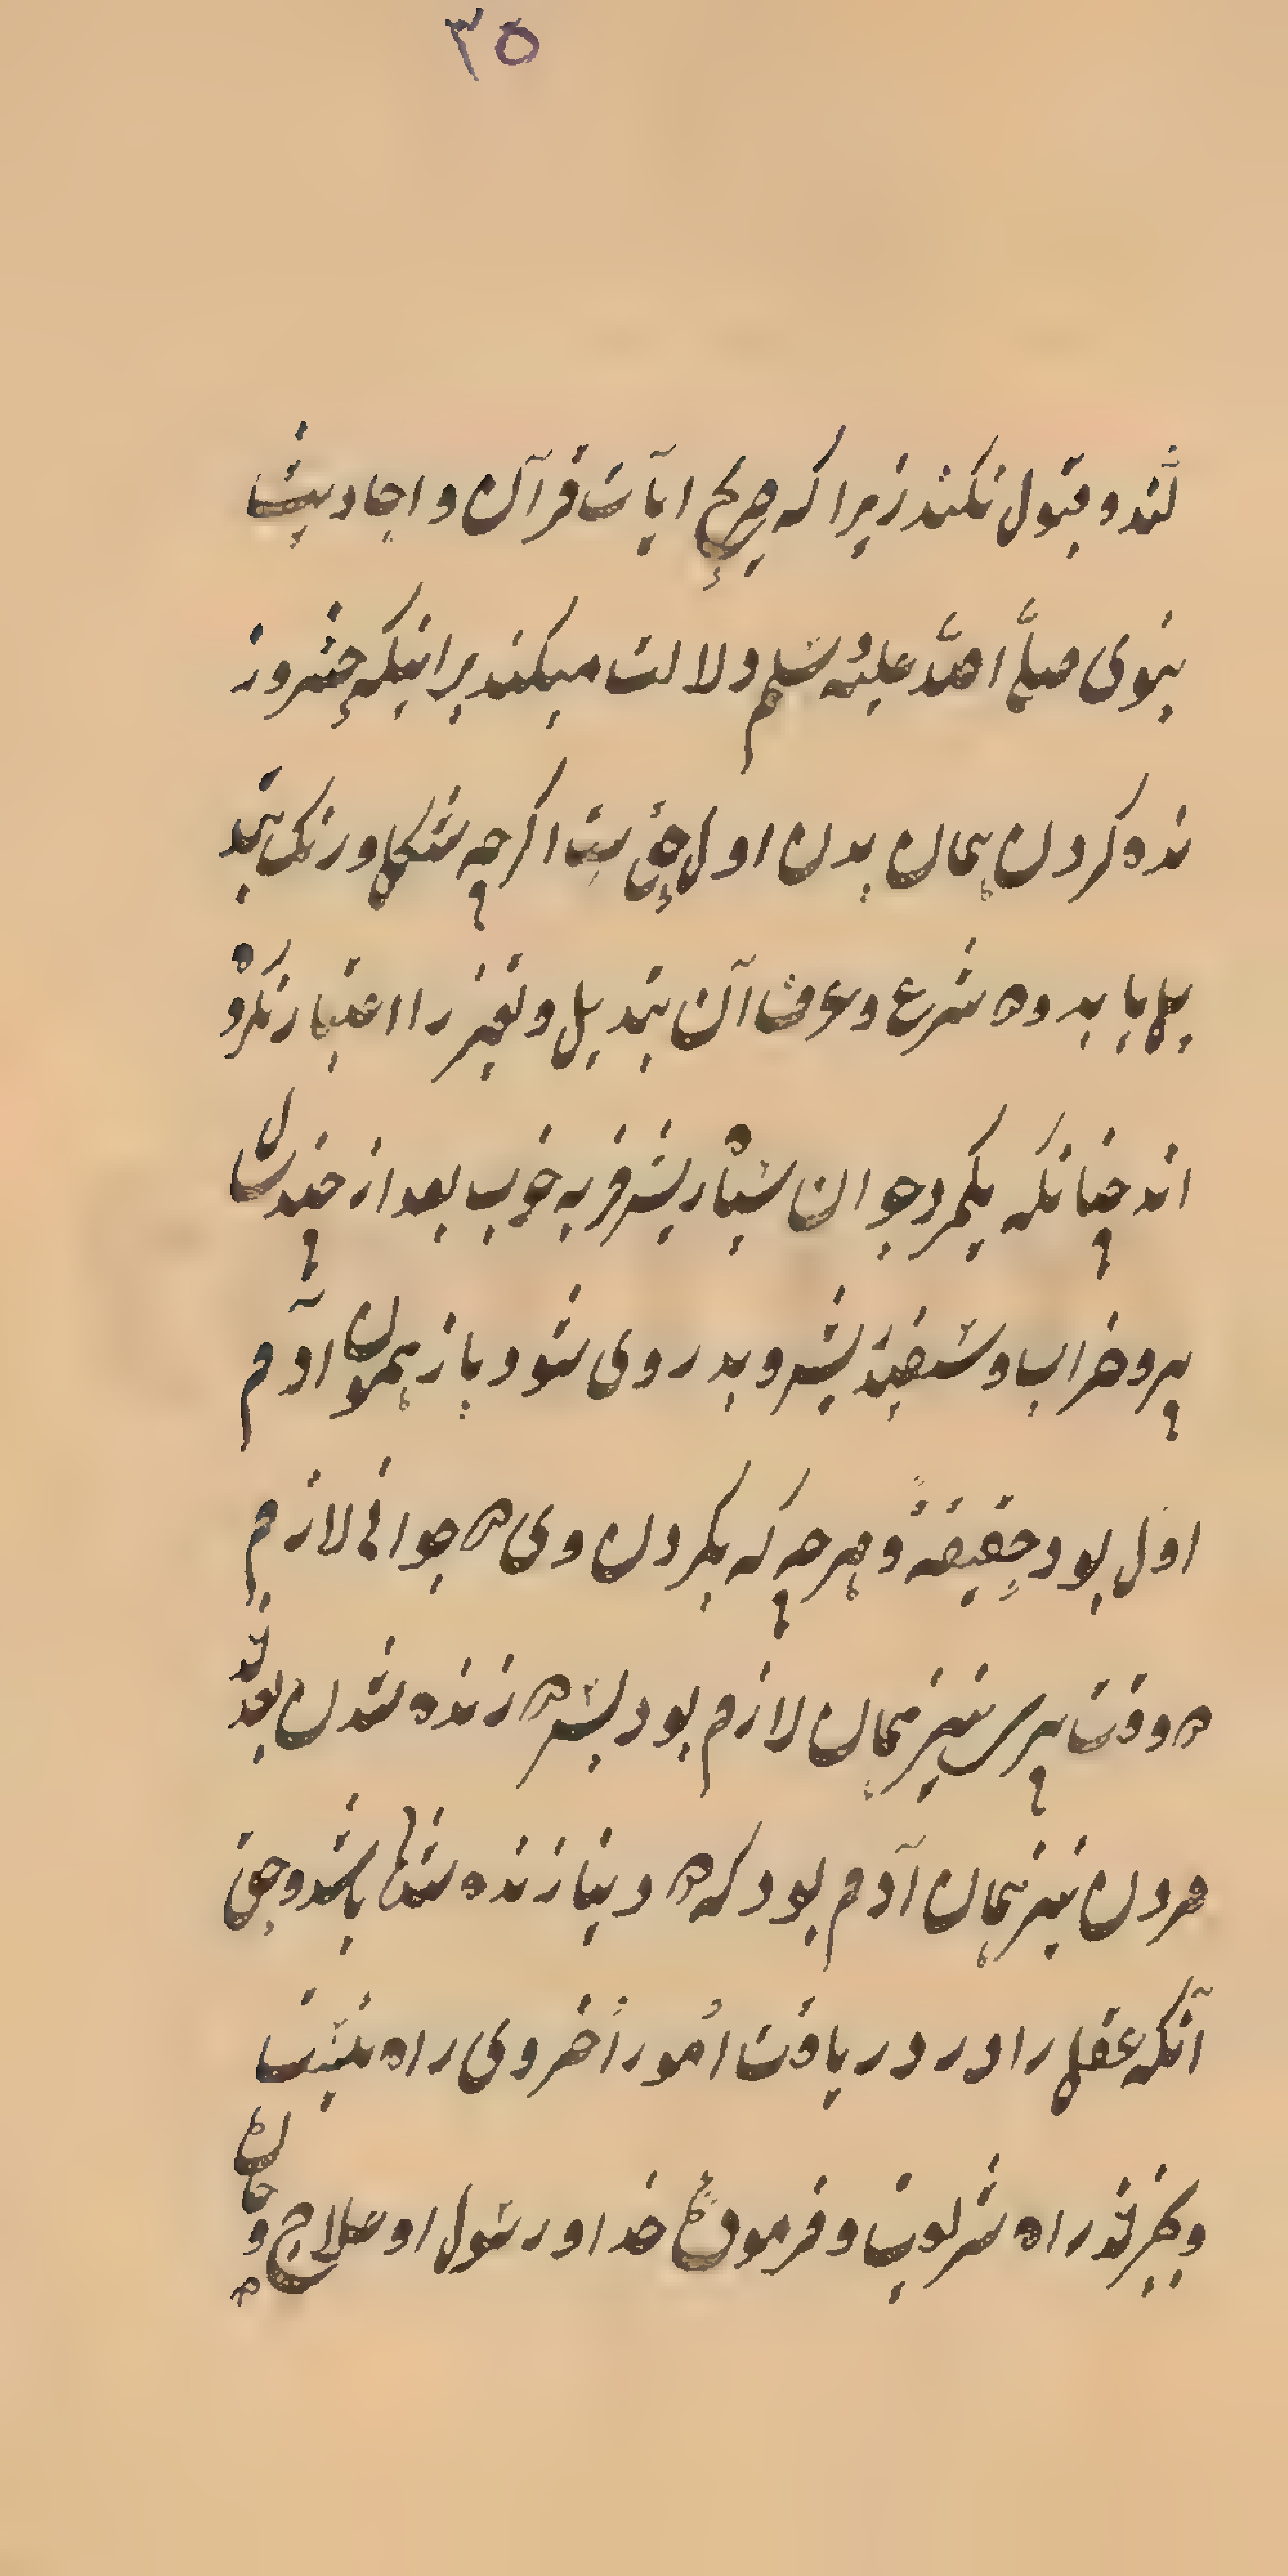 ۳۵
کنند و قبول نکنند زیرا که صریح ایآت قرآن و احادیث
نبوی صلّے اللّه علیه وسلم دلالت میکند برانیکه حشر و ز
نده کردن همان بدن اول حق است اکرچه شکل و رنک تبد
یل یابد و ه شرع و عرف آن تبدیل و تغیر را اعتبار نکرد
اند چنانکه یکمرد جوان بسیار فربه خوب بعد از چند سال
پیر و خراب و سفید و بد روی شود باز همون آدم
اول بود حقیقةً و هرچه که بکردن وی ه جوانی لازم
ه وقت پیری نیز همان لازم بود پس ه زنده شدن بعد
مردن نیز همان آدم بود که ه دنیا زنده باشد و حق
آنکه عقل را در دریافت اُمور اُخروی راه نیست
و بغیر راه شریعت و فرموده خدا و رسول او علاج و